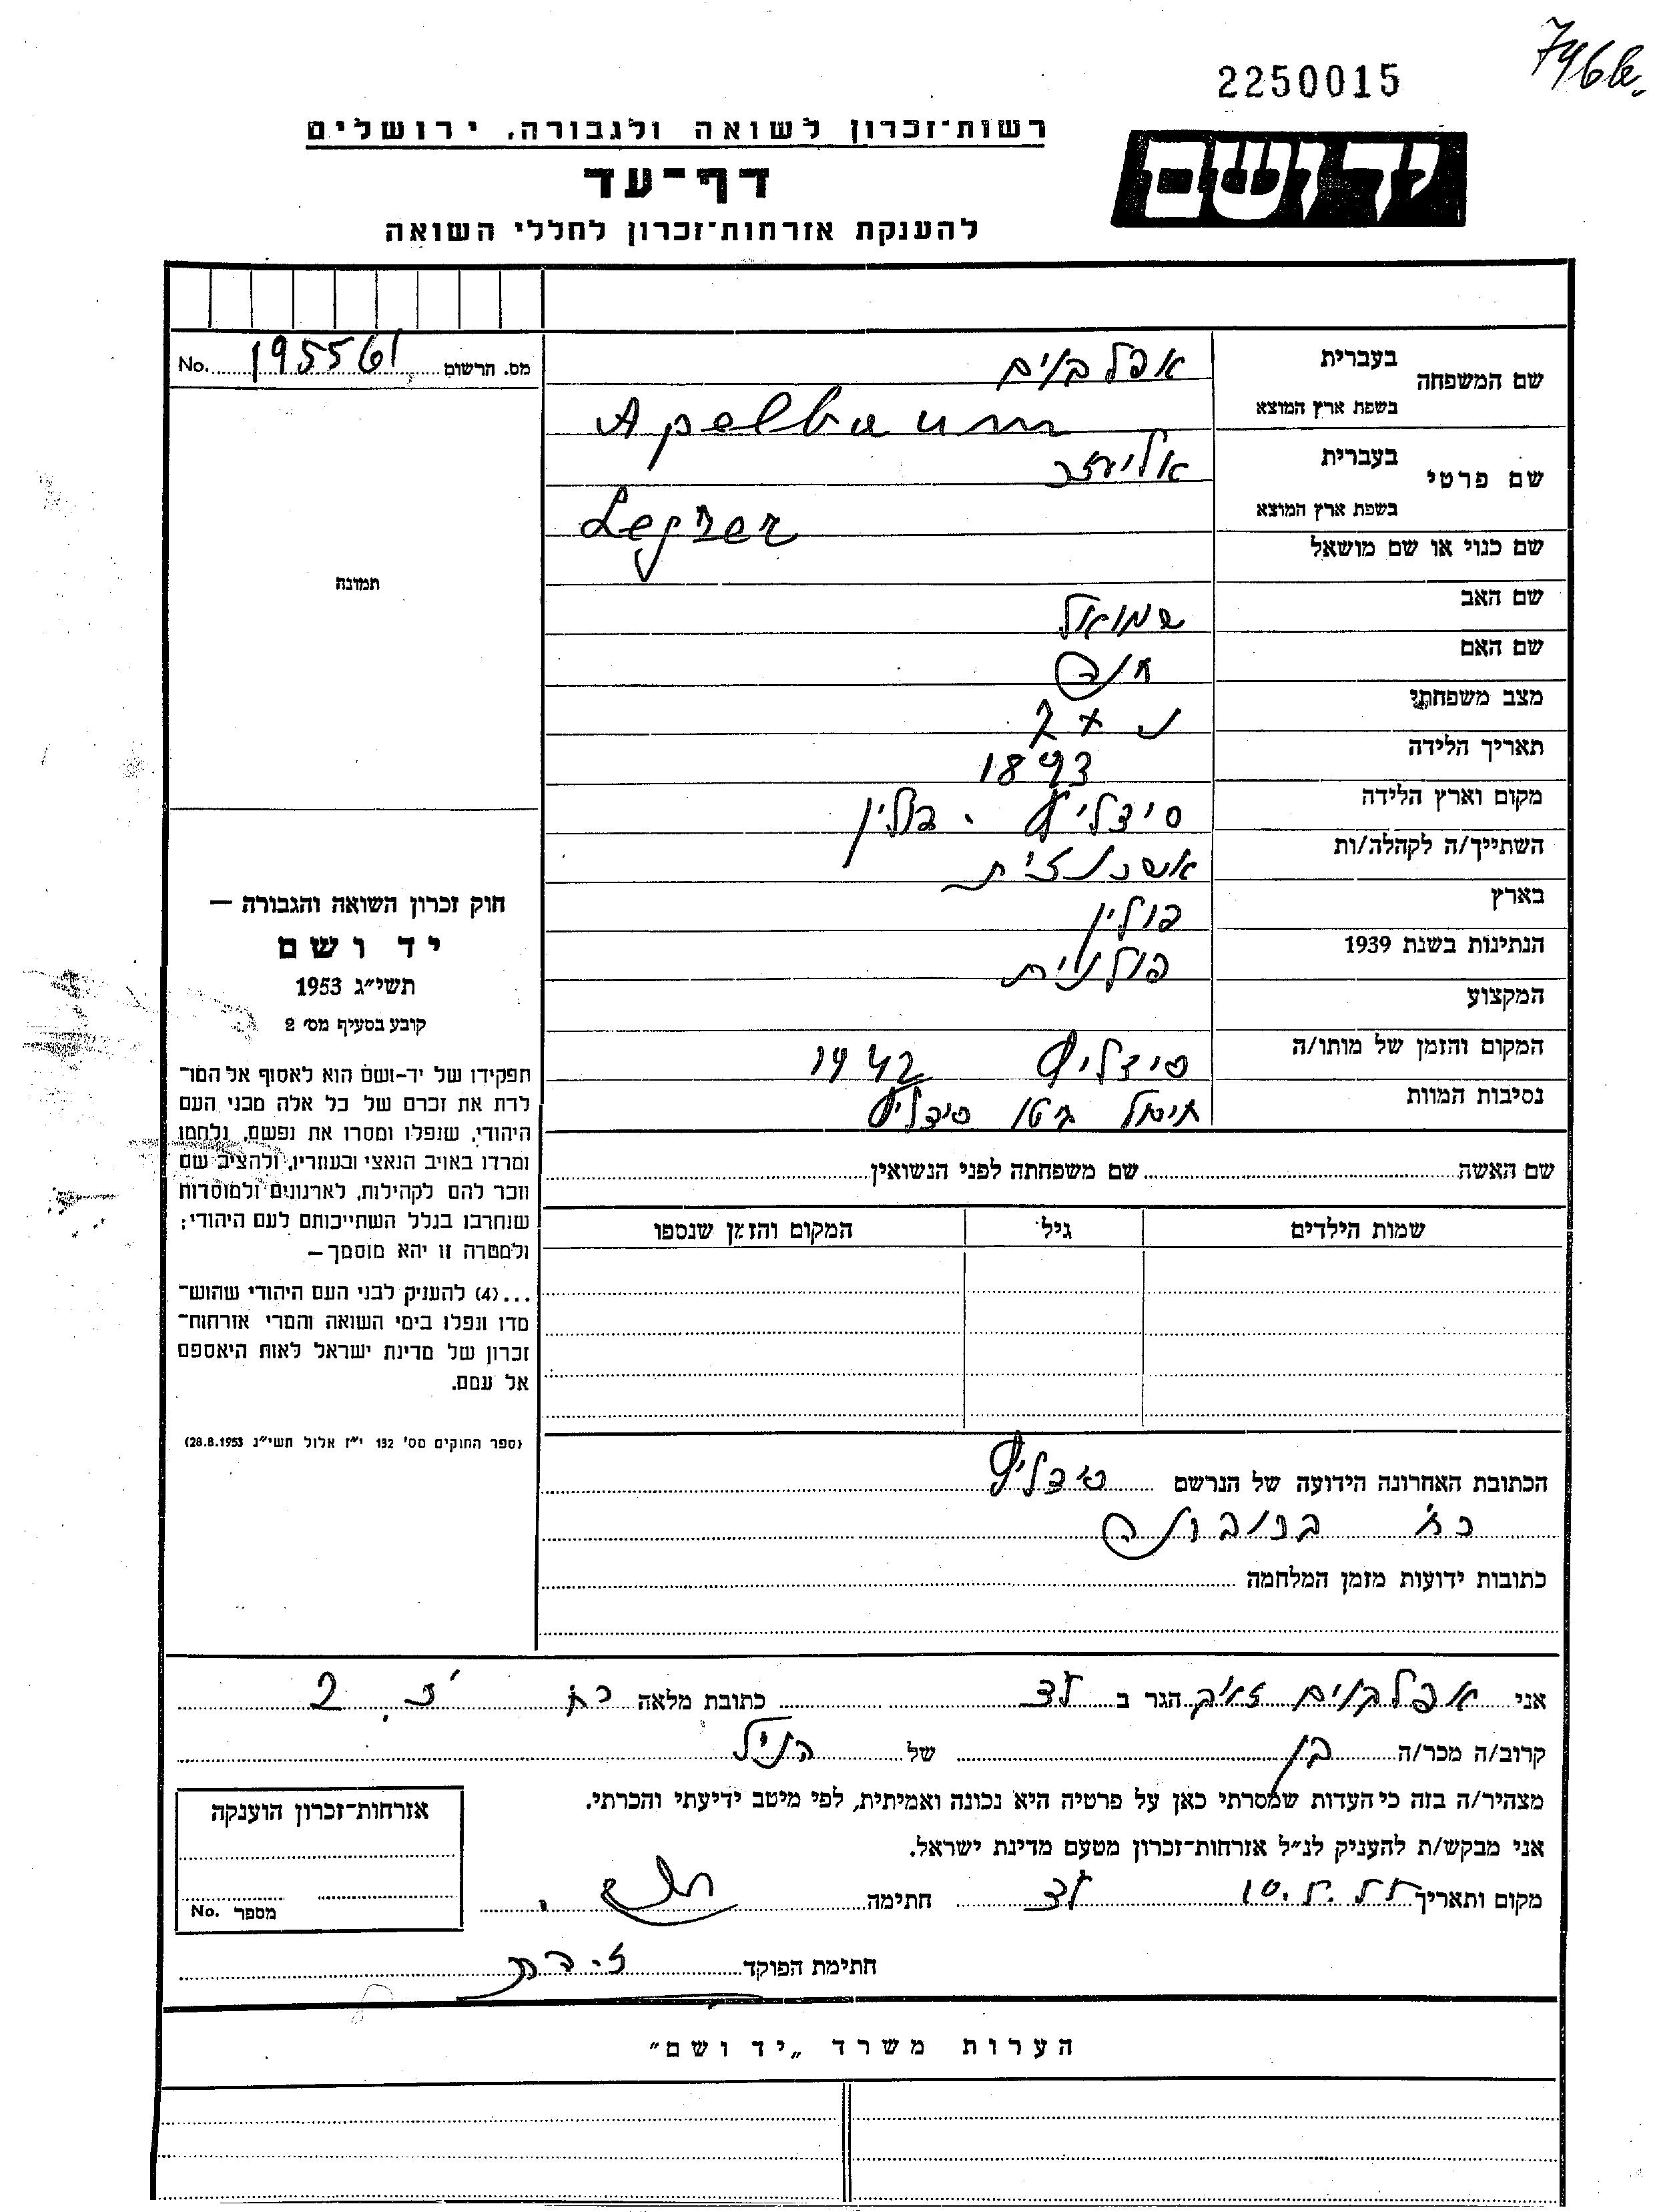 796b.
2250015
רשות־זכרון לשואה ולגבורה, ירושלים
יד ושם
דף־עד
להענקת אזרחות־זכרון לחללי השואה
מס. הרשום 195561 No.
שם המשפחה
בעברית אפלבוים
בשפת ארץ המוצא Apelbaum
שם פרטי
בעברית אליעזר
בשפת ארץ המוצא Lejzer
שם כנוי או שם מושאל
שם האב שמואל
שם האם
מצב משפחתי
תאריך הלידה 1893
מקום וארץ הלידה סידליץ . פולין
השתייך/ה לקהלה/ות אשכנזית
בארץ פולין
הנתינות בשנת 1939 פולנית
המקצוע
המקום והזמן של מותו/ה סידליץ 1942
נסיבות המוות חיסול גטו סידליץ
שם האשה שם משפחתה לפני הנשואין
שמות הילדים גיל המקום והזמן שנספו
הכתובת האחרונה הידועה של הנרשם סידליץ
רח'
כתובות ידועות מזמן המלחמה
תמונה
חוק זכרון השואה והגבורה —
יד ושם
תשי״ג 1953
קובע בסעיף מס׳ 2
תפקידו של יד-ושם הוא לאסוף אל המו־
לדת את זכרם של כל אלה מבני העם
היהודי, שנפלו ומסרו את נפשם, נלחמו
ומרדו באויב הנאצי ובעוזריו, ולהציב שם
וזכר להם לקהילות, לארגונים ולמוסדות
שנחרבו בגלל השתייכותם לעם היהודי;
ולמטרה זו יהא מוסמך —
...(4) להעניק לבני העם היהודי שהוש־
מדו ונפלו בימי השואה והמרי אזרחות־
זכרון של מדינת ישראל לאות היאספם
אל עמם.
(ספר החוקים מס׳ 132 י״ז אלול תשי״ג 28.8.1953)
אני אפלבוים הגר ב לוד כתובת מלאה רח 2
קרוב/ה מכר/ה בן של הנ״ל
מצהיר/ה בזה כי העדות שמסרתי כאן על פרטיה היא נכונה ואמיתית, לפי מיטב ידיעתי והכרתי.
אני מבקש/ת להעניק לנ״ל אזרחות־זכרון מטעם מדינת ישראל.
מקום ותאריך לוד חתימה
חתימת הפוקד
אזרחות־זכרון הוענקה
מספר No.
הערות משרד „יד ושם״